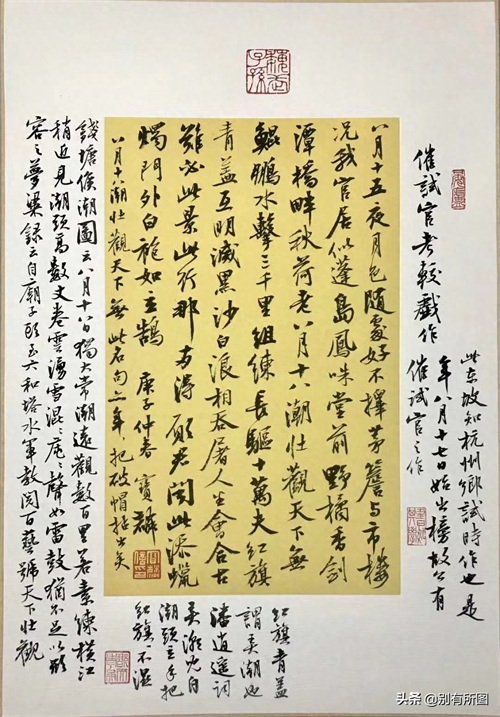 魏武子孫
催試官考較戲作
此東坡知杭州鄉試時作也是
年八月十七日始出榜故公有
催試官之作
八月十五夜月色隨處好不擇茅簷與市樓
況我官居似蓬島鳳咮堂前野橘香劍
潭橋畔秋荷老八月十八潮壯觀天下無
鯤鵬水擊三千里組練長驅十萬夫紅旗
青蓋互明滅黑沙白浪相吞屠人生會合古
難必此景此行那兩得願君聞此添蠟
燭門外白袍如立鵠 庚子仲春 寶麟
八月十八潮壯觀天下無此名句 年把破帽 出矣
錢塘候潮圖云八月十八日獨大常潮遠觀數百里若素練橫江
稍近見潮頭高數丈卷雲湧雪混〻庵〻聲如雷鼓猶不足以形
容之夢粱錄云自廟子頭至六和塔水軍教閱百藝號天下壯觀
紅旗青蓋
謂弄潮也
潘逍遙詞
弄潮兒向
潮頭立手把
紅旗〻不濕
头条 @别有所图